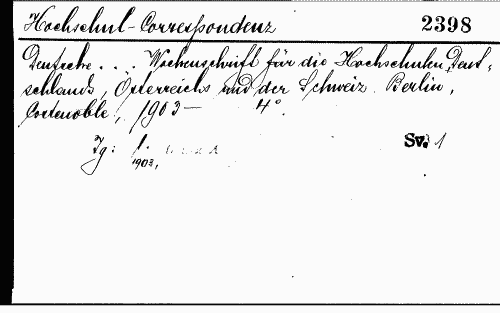 Hochschul-Correspondenz 2398
Deutsche . . . Wochenschrift für die Hochschulen Deut-
schlands, Österreichs und der Schweiz. Berlin,
Costenoble, 1903— 4°.
Jg: 1.
1903,
Sv. 1